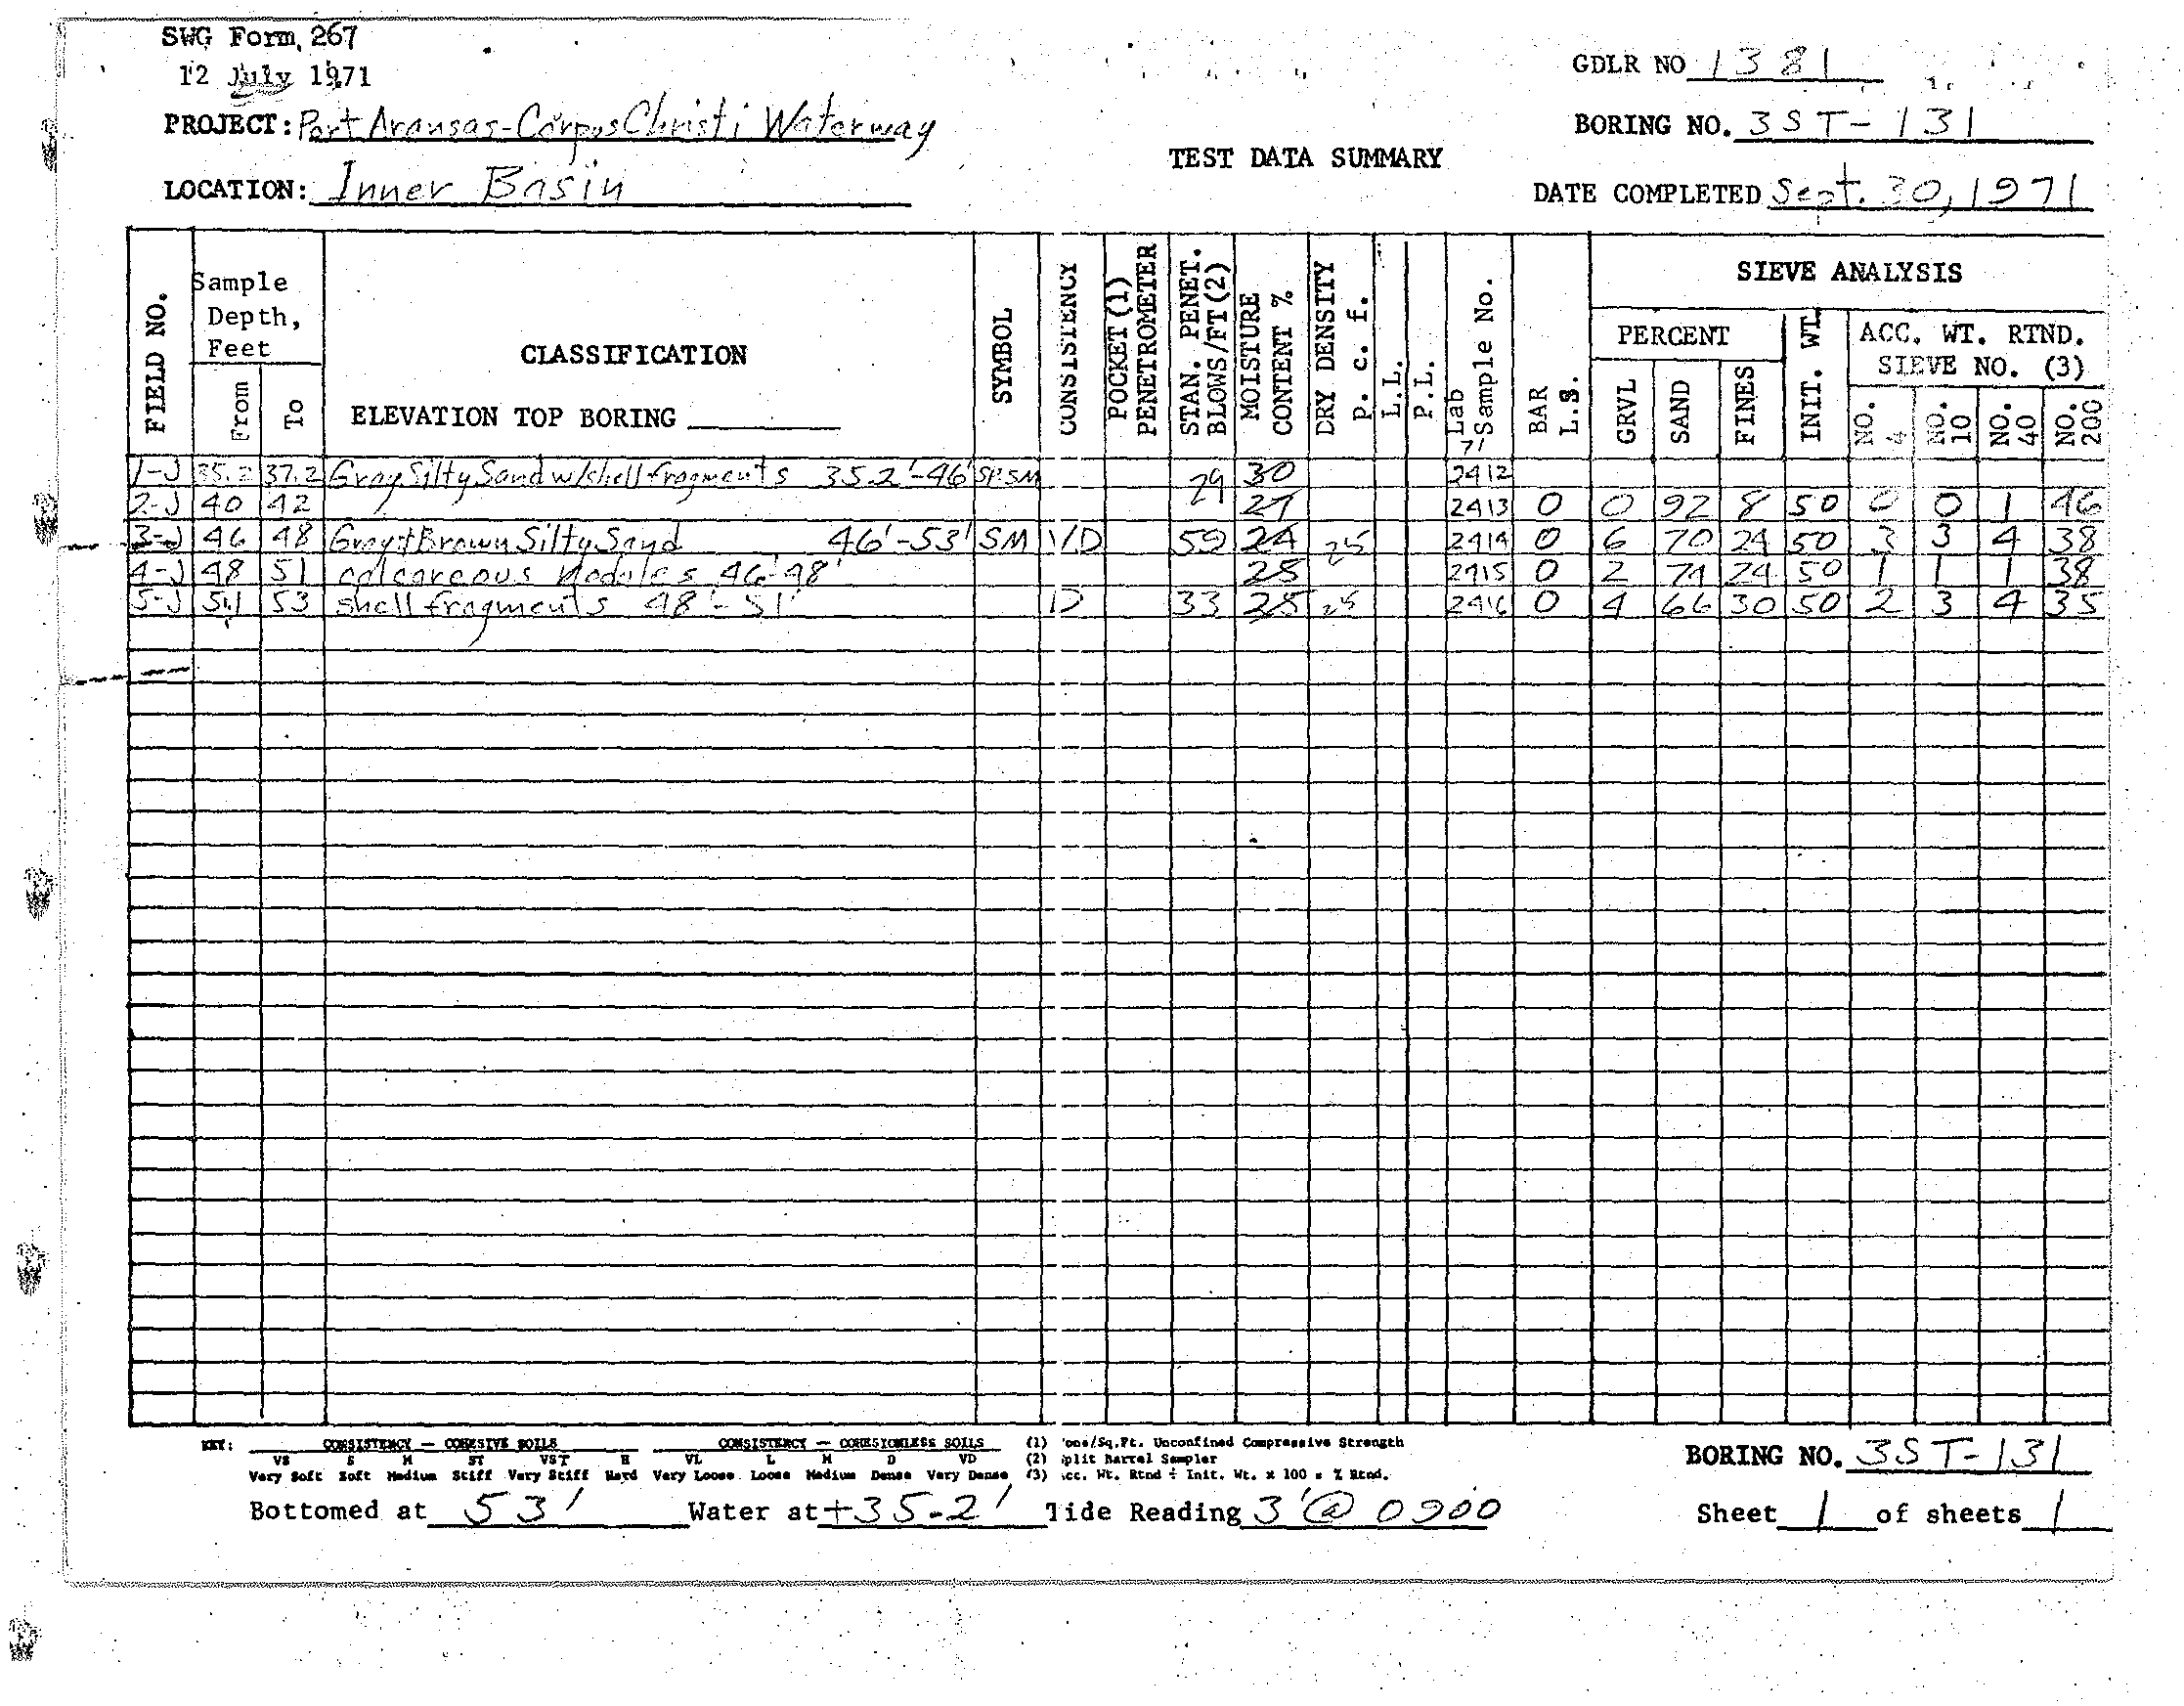 SWG Form 267
12 July 1971
GDLR NO 1381
PROJECT: Port Aransas-Corpus Christi Waterway
BORING NO. 3ST-131
TEST DATA SUMMARY
LOCATION: Inner Basin
DATE COMPLETED Sept. 30, 1971
FIELD NO. Sample Depth, Feet From To CLASSIFICATION ELEVATION TOP BORING SYMBOL CONSISTENCY POCKET (1) PENETROMETER STAN. PENET. BLOWS/FT (2) MOISTURE CONTENT % DRY DENSITY P. c. f. L.L. P.L. Lab Sample No. 71 BAR L.S. SIEVE ANALYSIS PERCENT GRVL SAND FINES INIT. WT. ACC. WT. RTND. SIEVE NO. (3) NO. 4 NO. 10 NO. 40 NO. 200
1-J 35.2 37.2 Gray Silty Sand w/shell fragments 35.2'-46' SP-SM 30 2412
2-J 40 42 29 27 2413 0 0 92 8 50 0 0 1 46
3-J 46 48 Gray & Brown Silty Sand 46'-53' SM VD 59 24 25 2414 0 6 70 24 50 3 3 4 38
4-J 48 51 calcareous nodules 46'-48' 25 2415 0 2 74 24 50 1 1 1 38
5-J 51 53 shell fragments 48'-51' D 33 25 25 2416 0 4 66 30 50 2 3 4 35
KEY: CONSISTENCY — COHESIVE SOILS CONSISTENCY — COHESIONLESS SOILS (1) Tons/Sq.Ft. Unconfined Compressive Strength
VS S M ST VST H VL L M D VD (2) Split Barrel Sampler
Very Soft Soft Medium Stiff Very Stiff Hard Very Loose Loose Medium Dense Very Dense (3) Acc. Wt. Rtnd ÷ Init. Wt. x 100 = % Rtnd.
BORING NO. 3ST-131
Bottomed at 53' Water at +35.2' Tide Reading 3' @ 0900 Sheet 1 of sheets 1